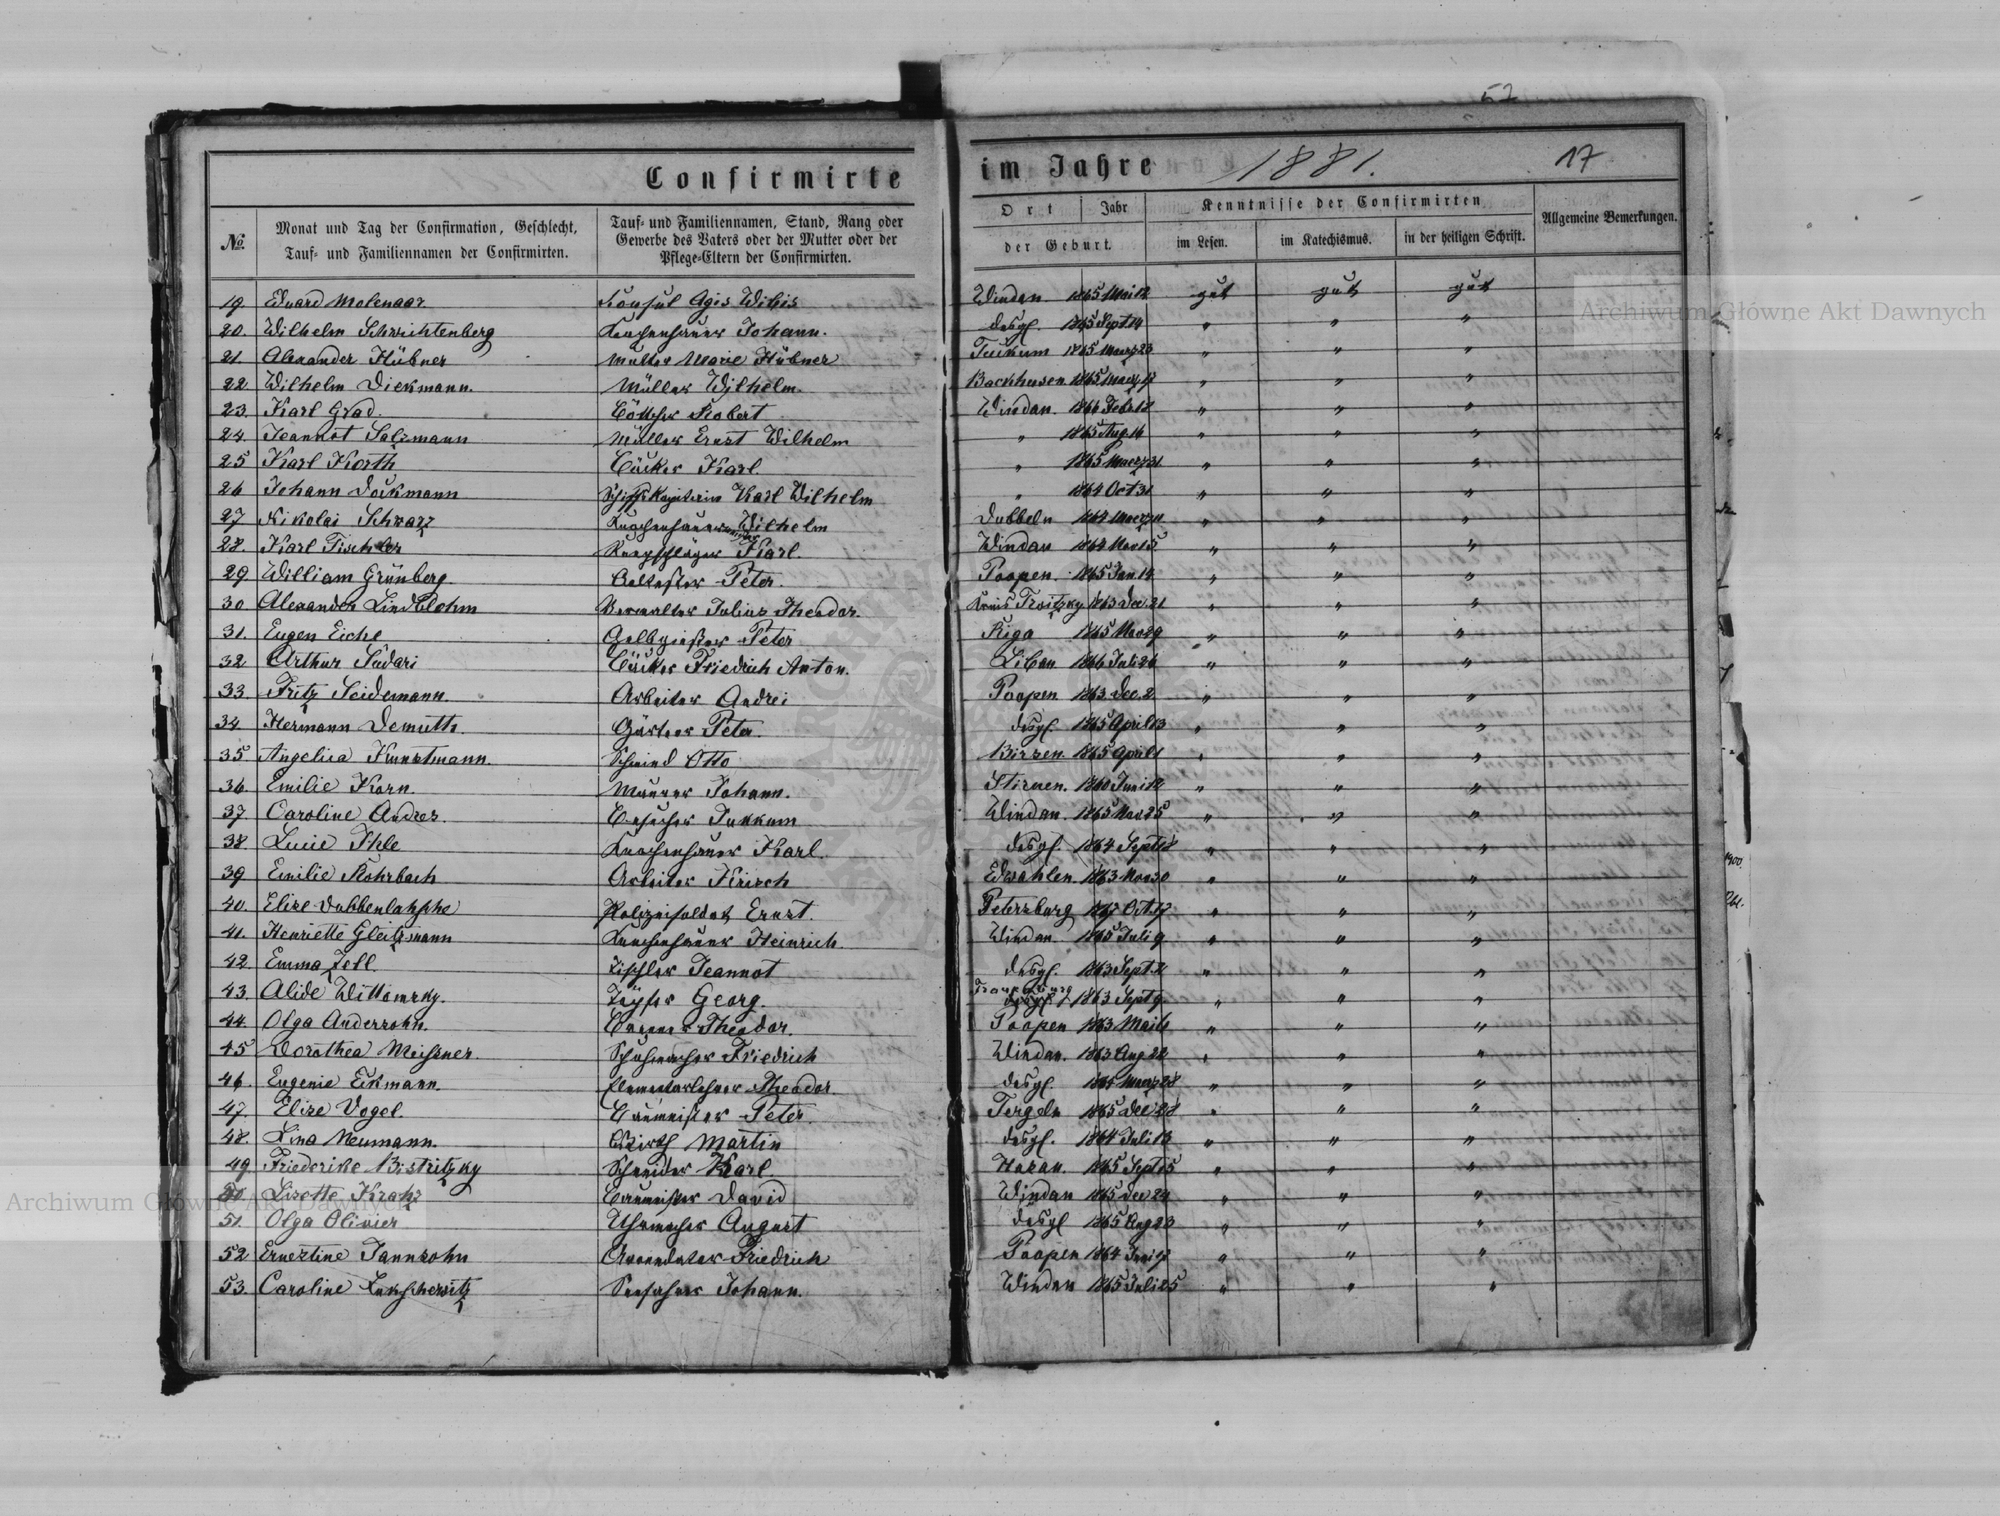 57
Confirmirte im Jahre 1881. 17
№.
Monat und Tag der Confirmation, Geschlecht, Tauf- und Familiennamen der Confirmirten.
Tauf- und Familiennamen, Stand, Rang oder Gewerbe des Vaters oder der Mutter oder der Pflege-Eltern der Confirmirten.
Ort Jahr
der Geburt.
Kenntnisse der Confirmirten
im Lesen. im Katechismus. in der heiligen Schrift.
Allgemeine Bemerkungen.
19. Eduard Molenaar Konsul Windau 1865 Mai 12 gut gut gut
20. Wilhelm Schrichtenberg Knochenhauer Johann. desgl. 1865 Sept. 14 " " "
21. Alexander Hübner Mutter Marie Hübner Tuckum 1865 Maerz 23 " " "
22. Wilhelm Diekmann. Müller Wilhelm. Backhusen 1865 Maerz 17 " " "
23. Karl Grad. Böttcher Robert Windau. 1866 Febr. 18 " " "
24. Jeannot Salzmann Müller Ernst Wilhelm " 1865 Aug. 16 " " "
25 Karl Korth Bäcker Karl. " 1865 Maerz 31 " " "
26 Johann Dockmann Schiffskapitain Karl Wilhelm " 1864 Oct 31 " " "
27 Nikolai Schwarz Knochenhauer Wilhelm Dubbeln 1864 Maerz 11 " " "
28. Karl Fischer Karl. Windau 1864 Nov 15 " " "
29 William Grünberg. Aeltester Peter. Poopen. 1865 Jan. 14 " " "
30 Alexander Lindblohm Verwalter Julius Theodor. Kreis Troitzky 1863 Dec. 21 " " "
31. Eugen Eiche Gelbgießer Peter Riga 1865 Nov 29 " " "
32 Arthur Sudari Bäcker Friedrich Anton. Libau 1866 Juli 26 " " "
33. Fritz Seidemann. Arbeiter Andrei Poopen 1863 Dec. 2 " " "
34 Hermann Demuth. Gärtner Peter. desgl. 1865 April 13 " " "
35 Angelica Kunstmann. Schmied Otto Birsen 1865 April 1 " " "
36. Emilie Korn. Maurer Johann. Stirnen. 1860 Juni 12 " " "
37. Caroline Andres Jukkum Windau 1865 Nov 25 " " "
38. Lucie Ihle Knochenhauer Karl. desgl. 1864 Sept 18 " " "
39 Emilie Rohrbach Arbeiter Kirsch Edwahlen 1863 Nov 30 " " "
40. Elise Dubbenlaksche Polizeisoldat Ernst. Petersburg 1867 Oct. 17 " " "
41. Henriette Gleitzmann Knochenhauer Heinrich. Windau 1865 Juli 9 " " "
42 Emma Zell. Tischler Jeannot desgl. 1863 Sept. 2 " " "
43. Alide Wittomsky. Töpfer Georg. 1863 Sept 9 " " "
44. Olga Andersohn. Theodor. Poopen 1863 Mai 6 " " "
45 Dorothea Meißner. Schuhmacher Friedrich Windau. 1863 Aug 22 " " "
46. Eugenie Eckmann. Elementarlehrer Theodor. desgl. Maerz 28 " " "
47. Elise Vogel. Baumeister Peter. Tergeln 1865 Dec 28 " " "
48. Lina Neumann. Wirth Martin desgl. 1864 Juli 13 " " "
49. Friederike Bistritzky Schneider Karl Hasau. 1865 Sept 15 " " "
50. Lisette Krahz Baumeister David Windau 1865 Dec 24 " " "
51. Olga Olivier Uhrmacher August desgl 1865 Aug 23 " " "
52 Ernestine Jannsohn Arrendator Friedrich Poopen 1864 Juni 17 " " "
53. Caroline Lukschewitz Seefahrer Johann. Windau 1865 Juli 25 " " "
Archiwum Główne Akt Dawnych
Archiwum Główne Akt Dawnych